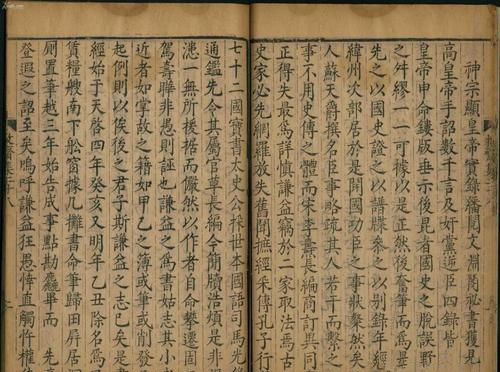 神宗顯皇帝實錄繙閱文淵閣秘書獲見
高皇帝手詔數千言及奸黨逆臣四錄皆
皇帝申命鏤版垂示後昆者國史之脫誤野
之舛繆一一可據以是正然後奮筆而爲
先之以國史證之以譜牒參之以別錄年經
緯州次部居於是開國功臣之事狀粲然矣
人蘇天爵撰名臣事略疏其人若干而繫之
事不用史傳之體而宋李燾長編商訂異同
正得失最爲詳慎謙益竊於二家取法焉古
史家必先網羅放失舊聞摭經采傳孔子行
七十二國寶書太史公採世本國語司馬光
通鑑先令其屬官草長編今簡牘浩煩是非
漶一無所援据而儼然以作者自命攀遷固
駕壽曄非愚則誣也謙益之爲書姑志其小
近者如掌故之籍如甲乙之簿或筆或削發
起例則以俟後之君子斯謙益之志已矣是
經始于天啓四年癸亥又明年乙丑除名爲
賃糧艘南下船窗据几攤書命筆歸田屏居
厠置筆越三年始告成事點勘麤畢而 先
登遐之詔至矣嗚呼謙益狂愚悖直觸忤權